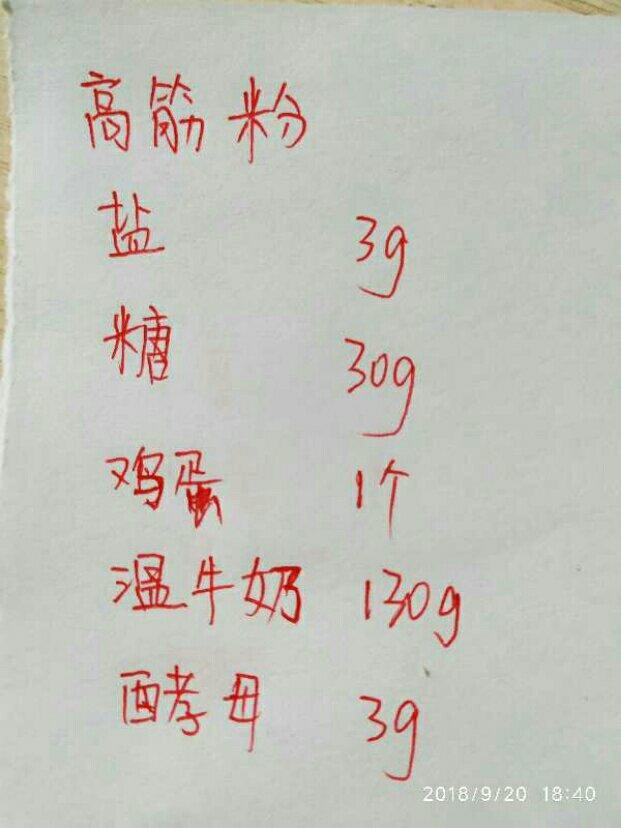 高筋粉
盐 3g
糖 30g
鸡蛋 1个
温牛奶 130g
酵母 3g
2018/9/20 18:40